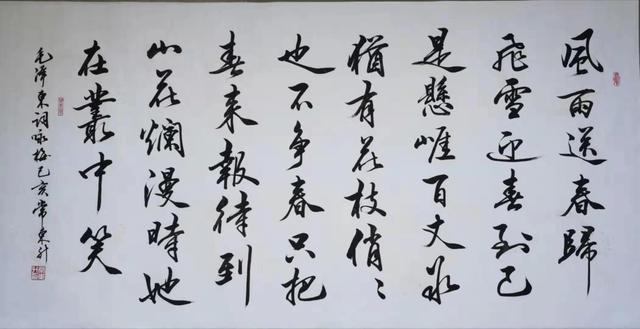 風雨送春歸
飛雪迎春到已
是懸崖百丈冰
猶有花枝俏〻
也不争春只把
春来報待到
山花爛漫時她
在叢中笑
毛泽东词咏梅己亥常东升